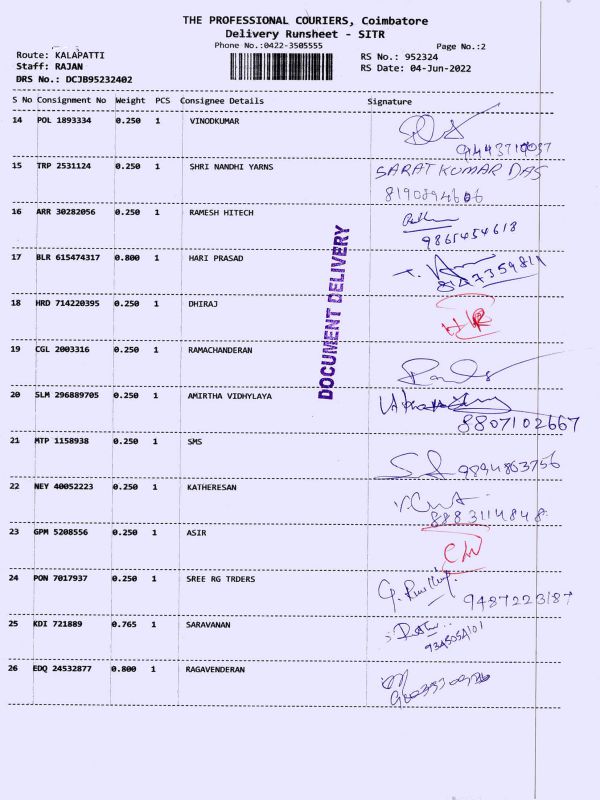 THE PROFESSIONAL COURIERS, Coimbatore
Delivery Runsheet - SITR
Phone No.:0422-3505555 Page No.:2
Route: KALAPATTI RS No.: 952324
Staff: RAJAN RS Date: 04-Jun-2022
DRS No.: DCJB95232402
S No Consignment No Weight PCS Consignee Details Signature
14 POL 1893334 0.250 1 VINODKUMAR
15 TRP 2531124 0.250 1 SHRI NANDHI YARNS SARAT KUMAR DAS
16 ARR 30282056 0.250 1 RAMESH HITECH
9865454618
17 BLR 615474317 0.800 1 HARI PRASAD
8147359811
DOCUMENT DELIVERY
18 HRD 714220395 0.250 1 DHIRAJ
19 CGL 2003316 0.250 1 RAMACHANDERAN
20 SLM 296889705 0.250 1 AMIRTHA VIDHYLAYA
8807102667
21 MTP 1158938 0.250 1 SMS
9894803756
22 NEY 40052223 0.250 1 KATHERESAN
8883114848
23 GPM 5208556 0.250 1 ASIR
24 PON 7017937 0.250 1 SREE RG TRDERS
9487223187
25 KDI 721889 0.765 1 SARAVANAN
26 EDQ 24532877 0.800 1 RAGAVENDERAN